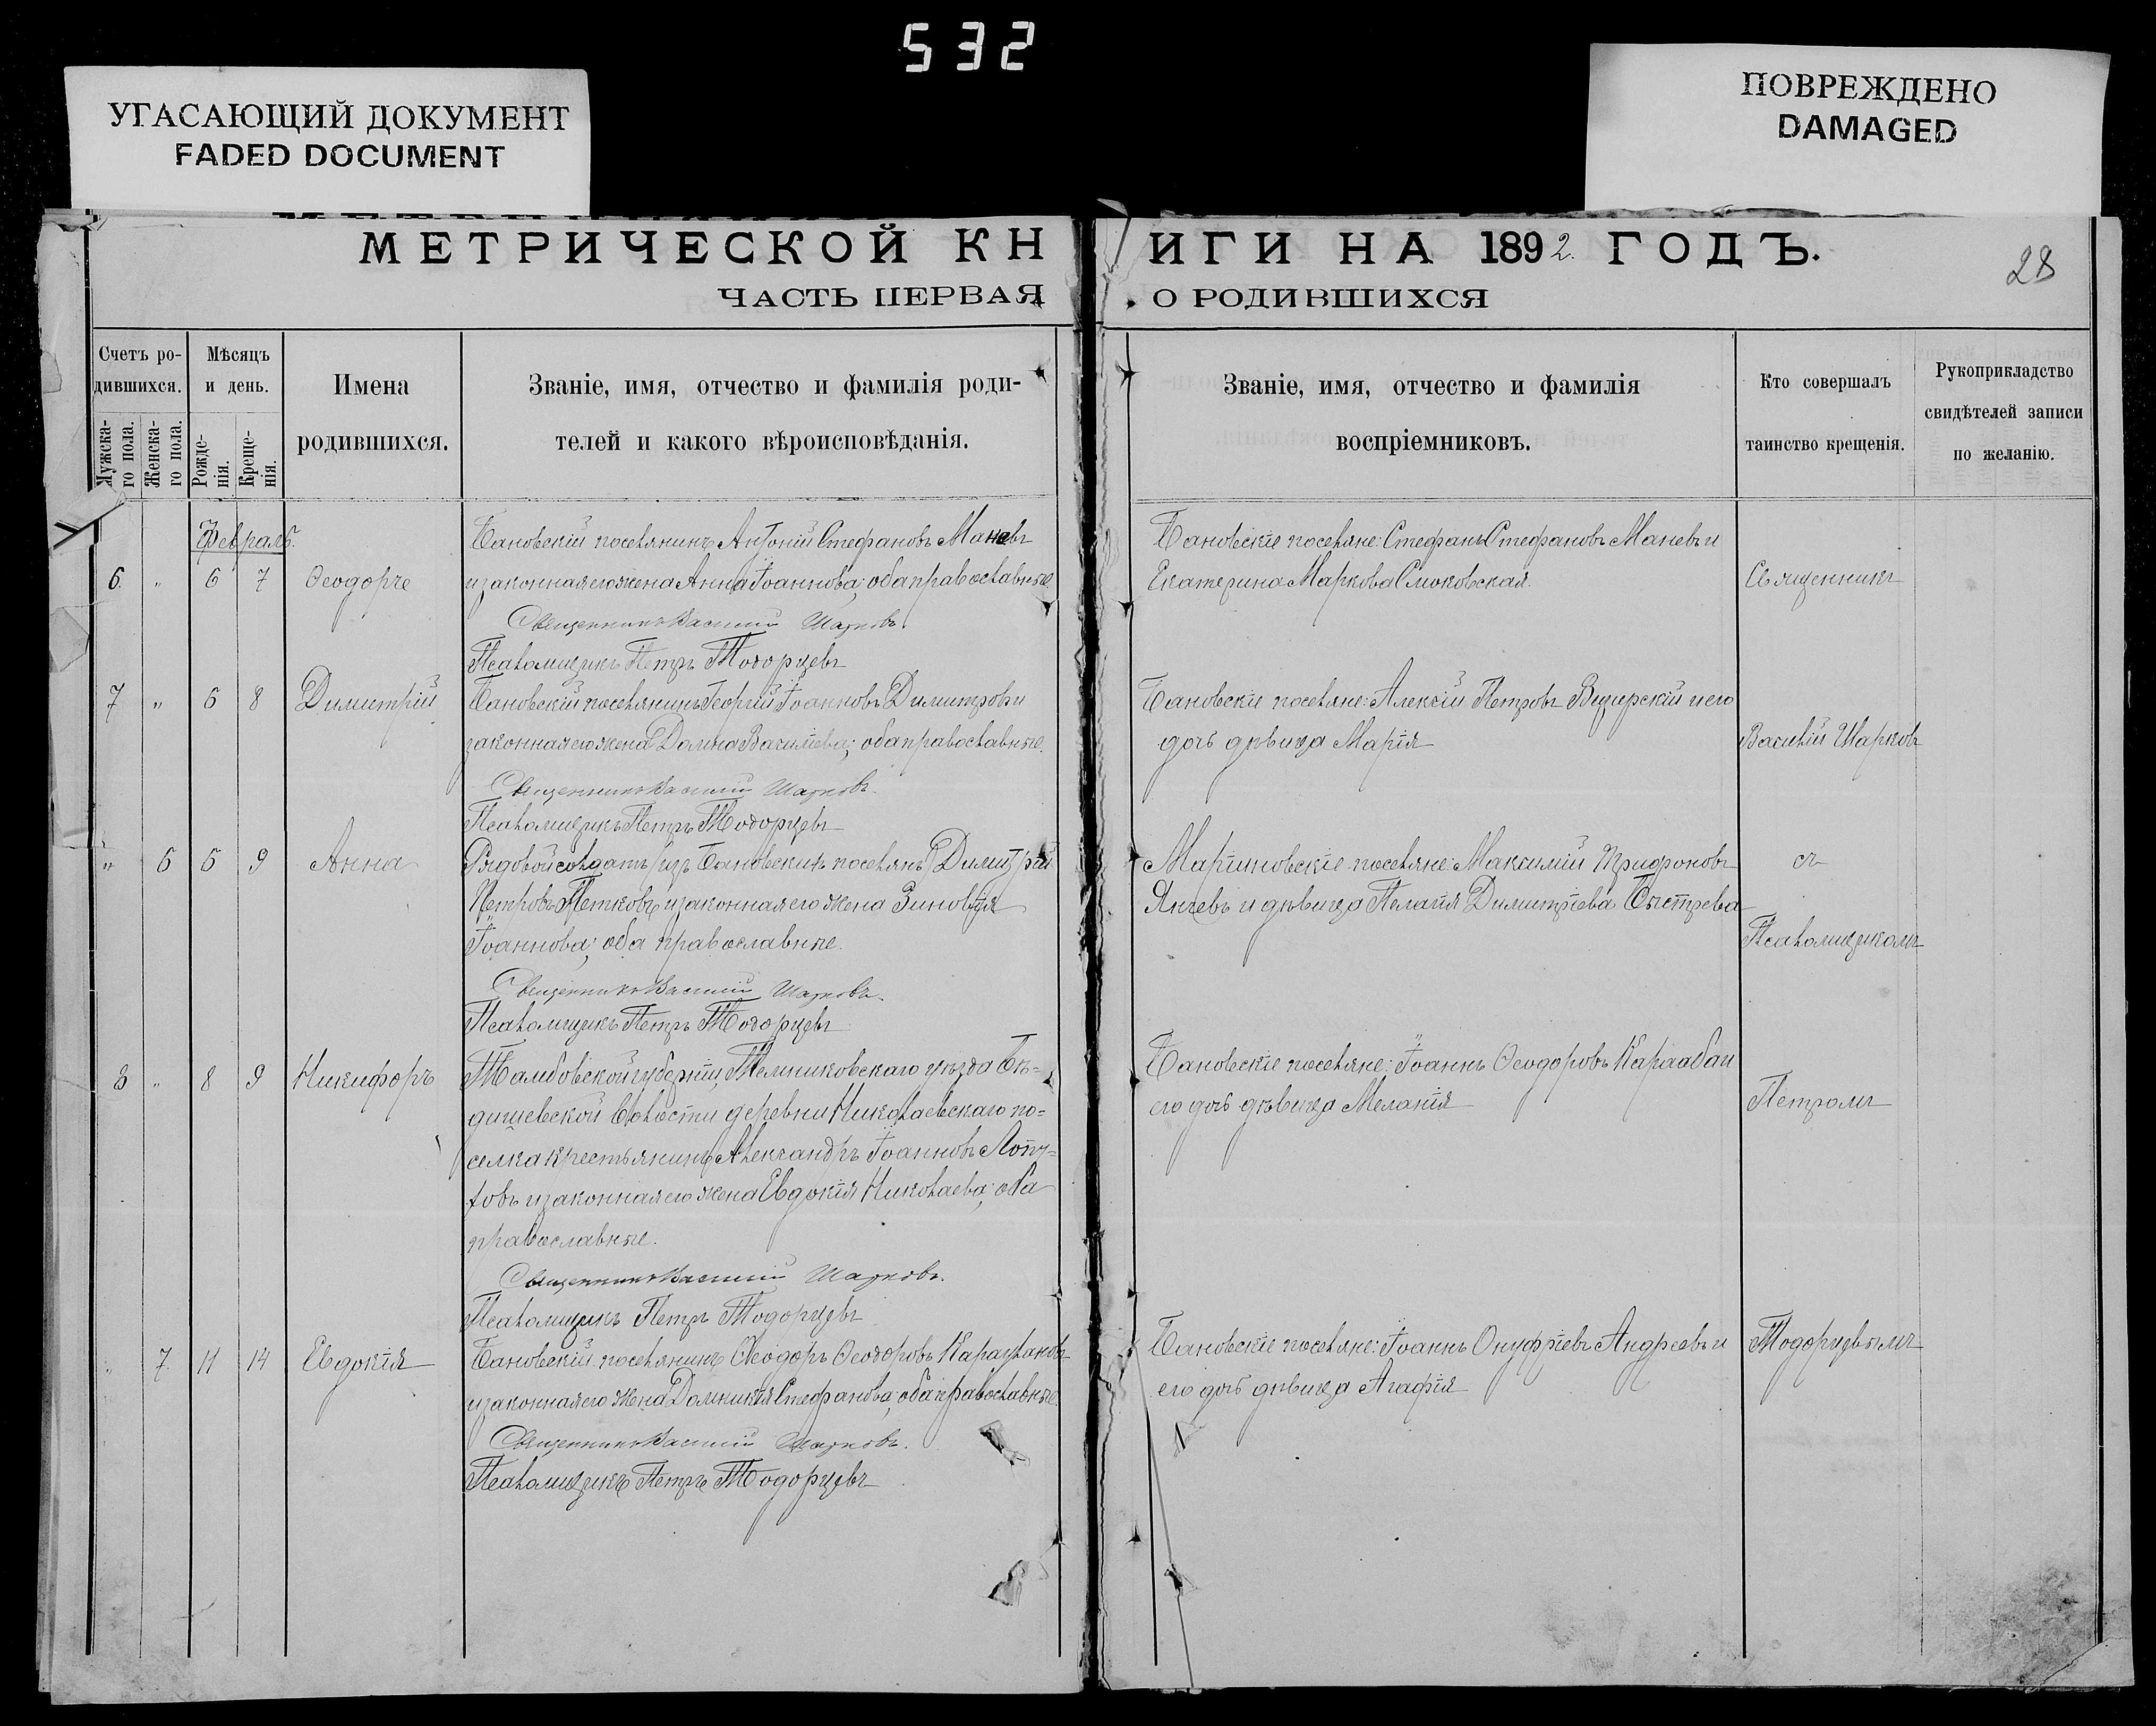 532
УГАСАЮЩИЙ ДОКУМЕНТ
FADED DOCUMENT
ПОВРЕЖДЕНО
DAMAGED
МЕТРИЧЕСКОЙ КН
ИГИ НА 1892. ГОДЪ.
28
ЧАСТЬ ПЕРВАЯ
О РОДИВШИХСЯ
Счетъ ро-
дившихся.
Мужска-
го пола.
Женска-
го пола.
Мѣсяцъ
и день.
Рожде-
нія.
Креще-
нія.
Имена
родившихся.
Званіе, имя, отчество и фамилія роди-
телей и какого вѣроисповѣданія.
Званіе, имя, отчество и фамилія
воспріемниковъ.
Кто совершалъ
таинство крещенія.
Рукоприкладство
свидѣтелей записи
по желанію.
Февраль.
6. " 6 7 Ѳеодоръ
Бановскій поселянинъ Антоній Стефановъ Маневъ
и законная его жена Анна Іоаннова; оба православные
Священникъ Василій Шарковъ.
Псаломщикъ Петръ Тодорцевъ
Бановскіе поселяне: Стефанъ Стефановъ Маневъ и
Екатерина Маркова Смоковская.
Священникъ
7 " 6 8 Димитрій
Бановскій поселянинъ Георгій Іоанновъ Димитровъ и
законная его жена Домна Васильева; оба православные.
Священникъ Василій Шарковъ.
Псаломщикъ Петръ Тодорцевъ
Бановскіе поселяне: Алексій Петровъ и его
дочь дѣвица Марія
Василій Шарковъ
" 6 5 9 Анна
Рядовой солдатъ (изъ Бановскихъ поселянъ) Димитрій
Петровъ Петковъ и законная его жена Зиновія
Іоаннова; оба православные.
Священникъ Василій Шарковъ.
Псаломщикъ Петръ Тодорцевъ
Маріиновскіе поселяне: Максимій Трифоновъ
Янчевъ и дѣвица Пелагія Димитріева Быстрева
съ
Псаломщикомъ
8 " 8 9 Никифоръ
Тамбовской губерніи Темниковскаго уѣзда Бѣ-
дишевской волости деревни Николаевскаго по-
селка крестьянинъ Александръ Іоанновъ Лопу-
ховъ и законная его жена Евдокія Николаева; оба
православные.
Священникъ Василій Шарковъ.
Псаломщикъ Петръ Тодорцевъ
Бановскіе поселяне: Іоаннъ Ѳеодоровъ Караабаи
его дочь дѣвица Меланія
Петромъ
" 7 11 14 Евдокія
Бановскій поселянинъ Ѳеодоръ Ѳеодоровъ
и законная его жена Домникія Стефанова; оба православные.
Священникъ Василій Шарковъ.
Псаломщикъ Петръ Тодорцевъ
Бановскіе поселяне: Іоаннъ Онуфріевъ Андреевъ и
его дочь дѣвица Агафія
Тодорцевымъ